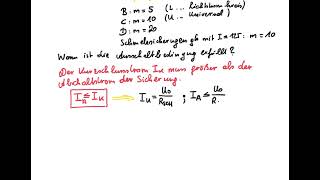 B: m = 5 (L... Lichtstromkreis)
C: m = 10 (U... Universal)
D: m = 20
Schmelzsicherungen gG mit I ≤ 125: m = 10
Wann ist die Abschaltbedingung erfüllt?
Der Kurzschlussstrom IK muss größer als der
Abschaltstrom der Sicherung.
IA ≤ IK ⟹ IK = U0/RSCH ; IA ≤ U0/R..